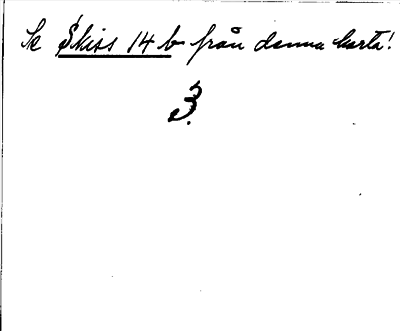 Se Skiss 14 b från denna karta!
3.